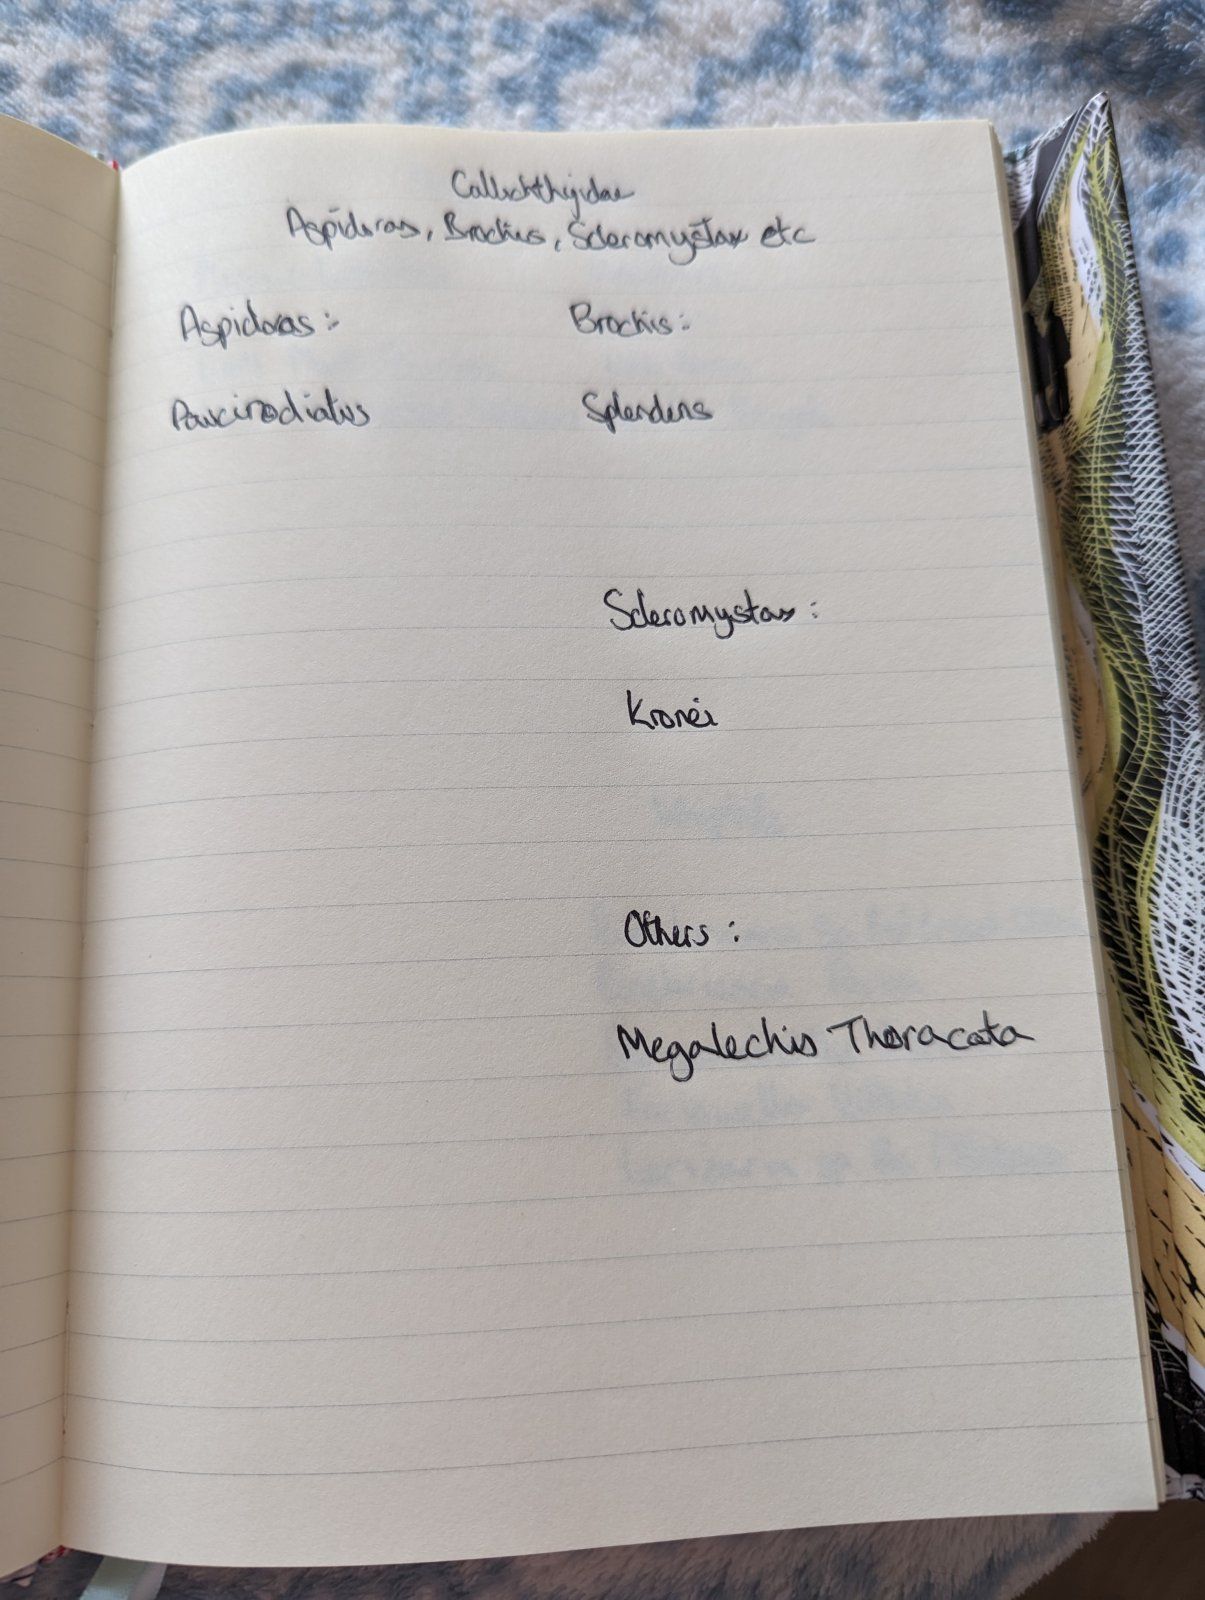 Callichthyidae
Aspidoras, Brochis, Scleromystax etc
Aspidoras :-
Brochis :
Pauciradiatus
Splendens
Scleromystax :
Kronei
Others :
Megalechis Thoracata